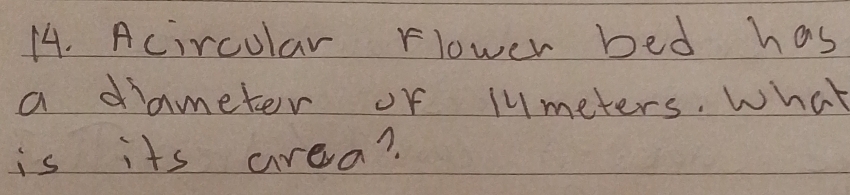 14. A circular Flower bed has
a diameter of 14 meters. What
is its area?